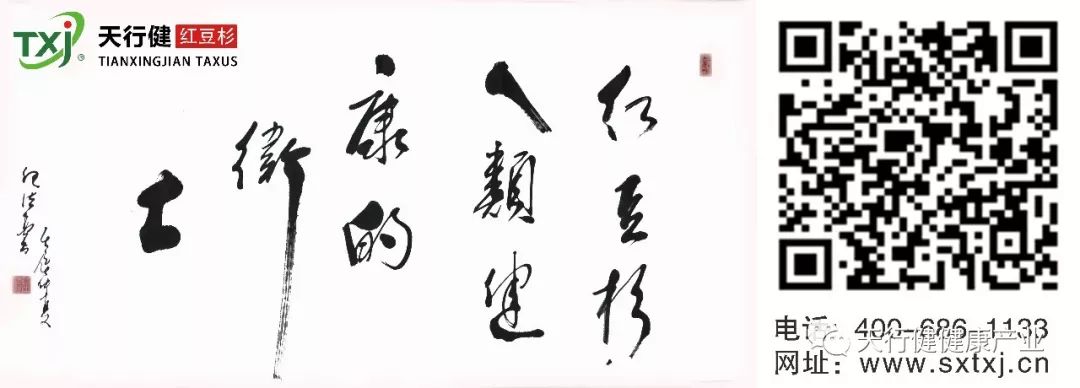 TXJ®
天行健 红豆杉
TIANXINGJIAN TAXUS
红豆杉
人類健
康的
衛
士
电话：400-686-1133
天行健健康产业
网址：www.sxtxj.cn